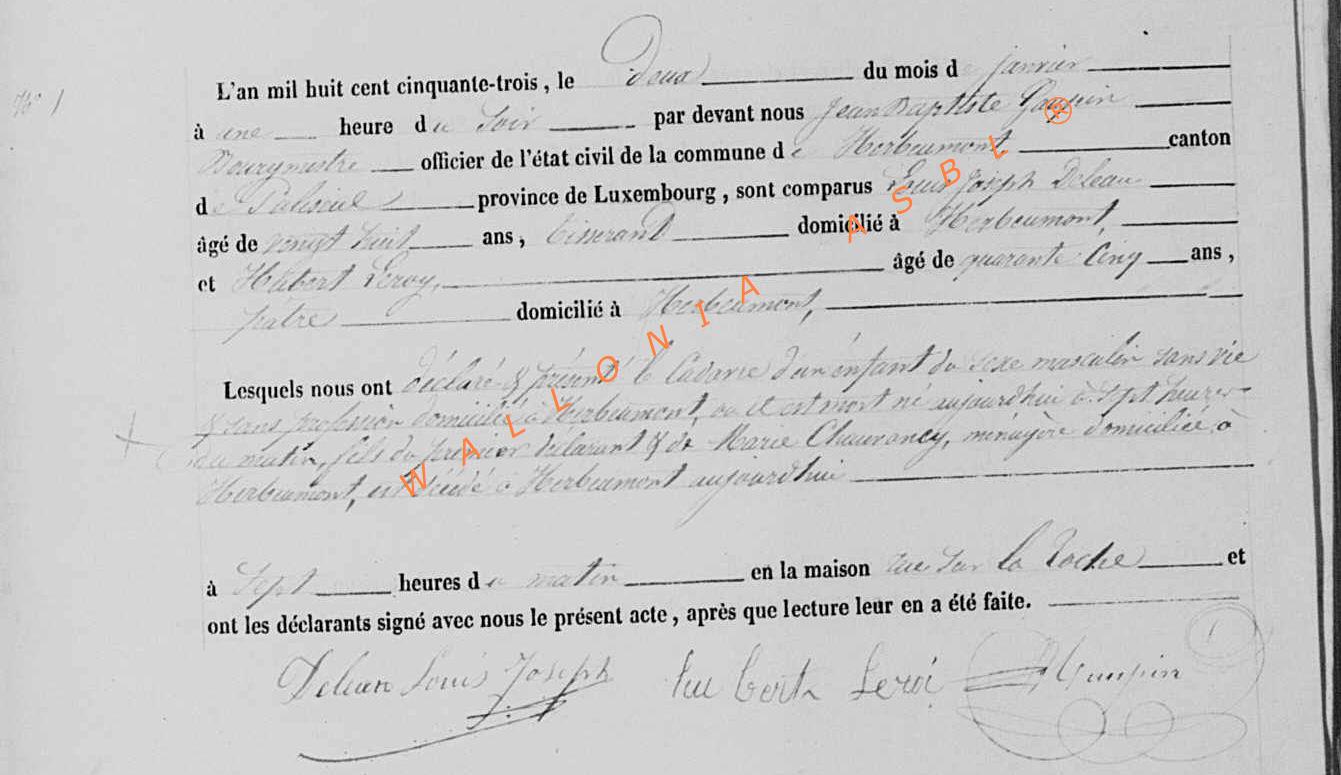 N° 1
L'an mil huit cent cinquante-trois, le Deux du mois de janvier
à une heure du Soir par devant nous Jean Baptiste
Bourgmestre officier de l'état civil de la commune de Herbeumont, canton
de Paliseul province de Luxembourg, sont comparus Louis Joseph Deleau
âgé de vingt huit ans, tisserand domicilié à Herbeumont,
et Hubert Leroy, âgé de quarante Cinq ans,
pâtre domicilié à Herbeumont,
Lesquels nous ont déclaré & présenté le Cadavre d'un enfant du sexe masculin sans vie
& sans profession domicilié à Herbeumont, où il est mort né aujourd'hui à sept heures
du matin, fils du premier déclarant & de Marie Chauvancy, ménagère domiciliée à
Herbeumont, est décédé à Herbeumont aujourd'hui
à Sept heures du matin en la maison rue sur la Roche et
ont les déclarants signé avec nous le présent acte, après que lecture leur en a été faite.
Deleau Louis Joseph Hubert Leroi
WALLONIA ASBL ®